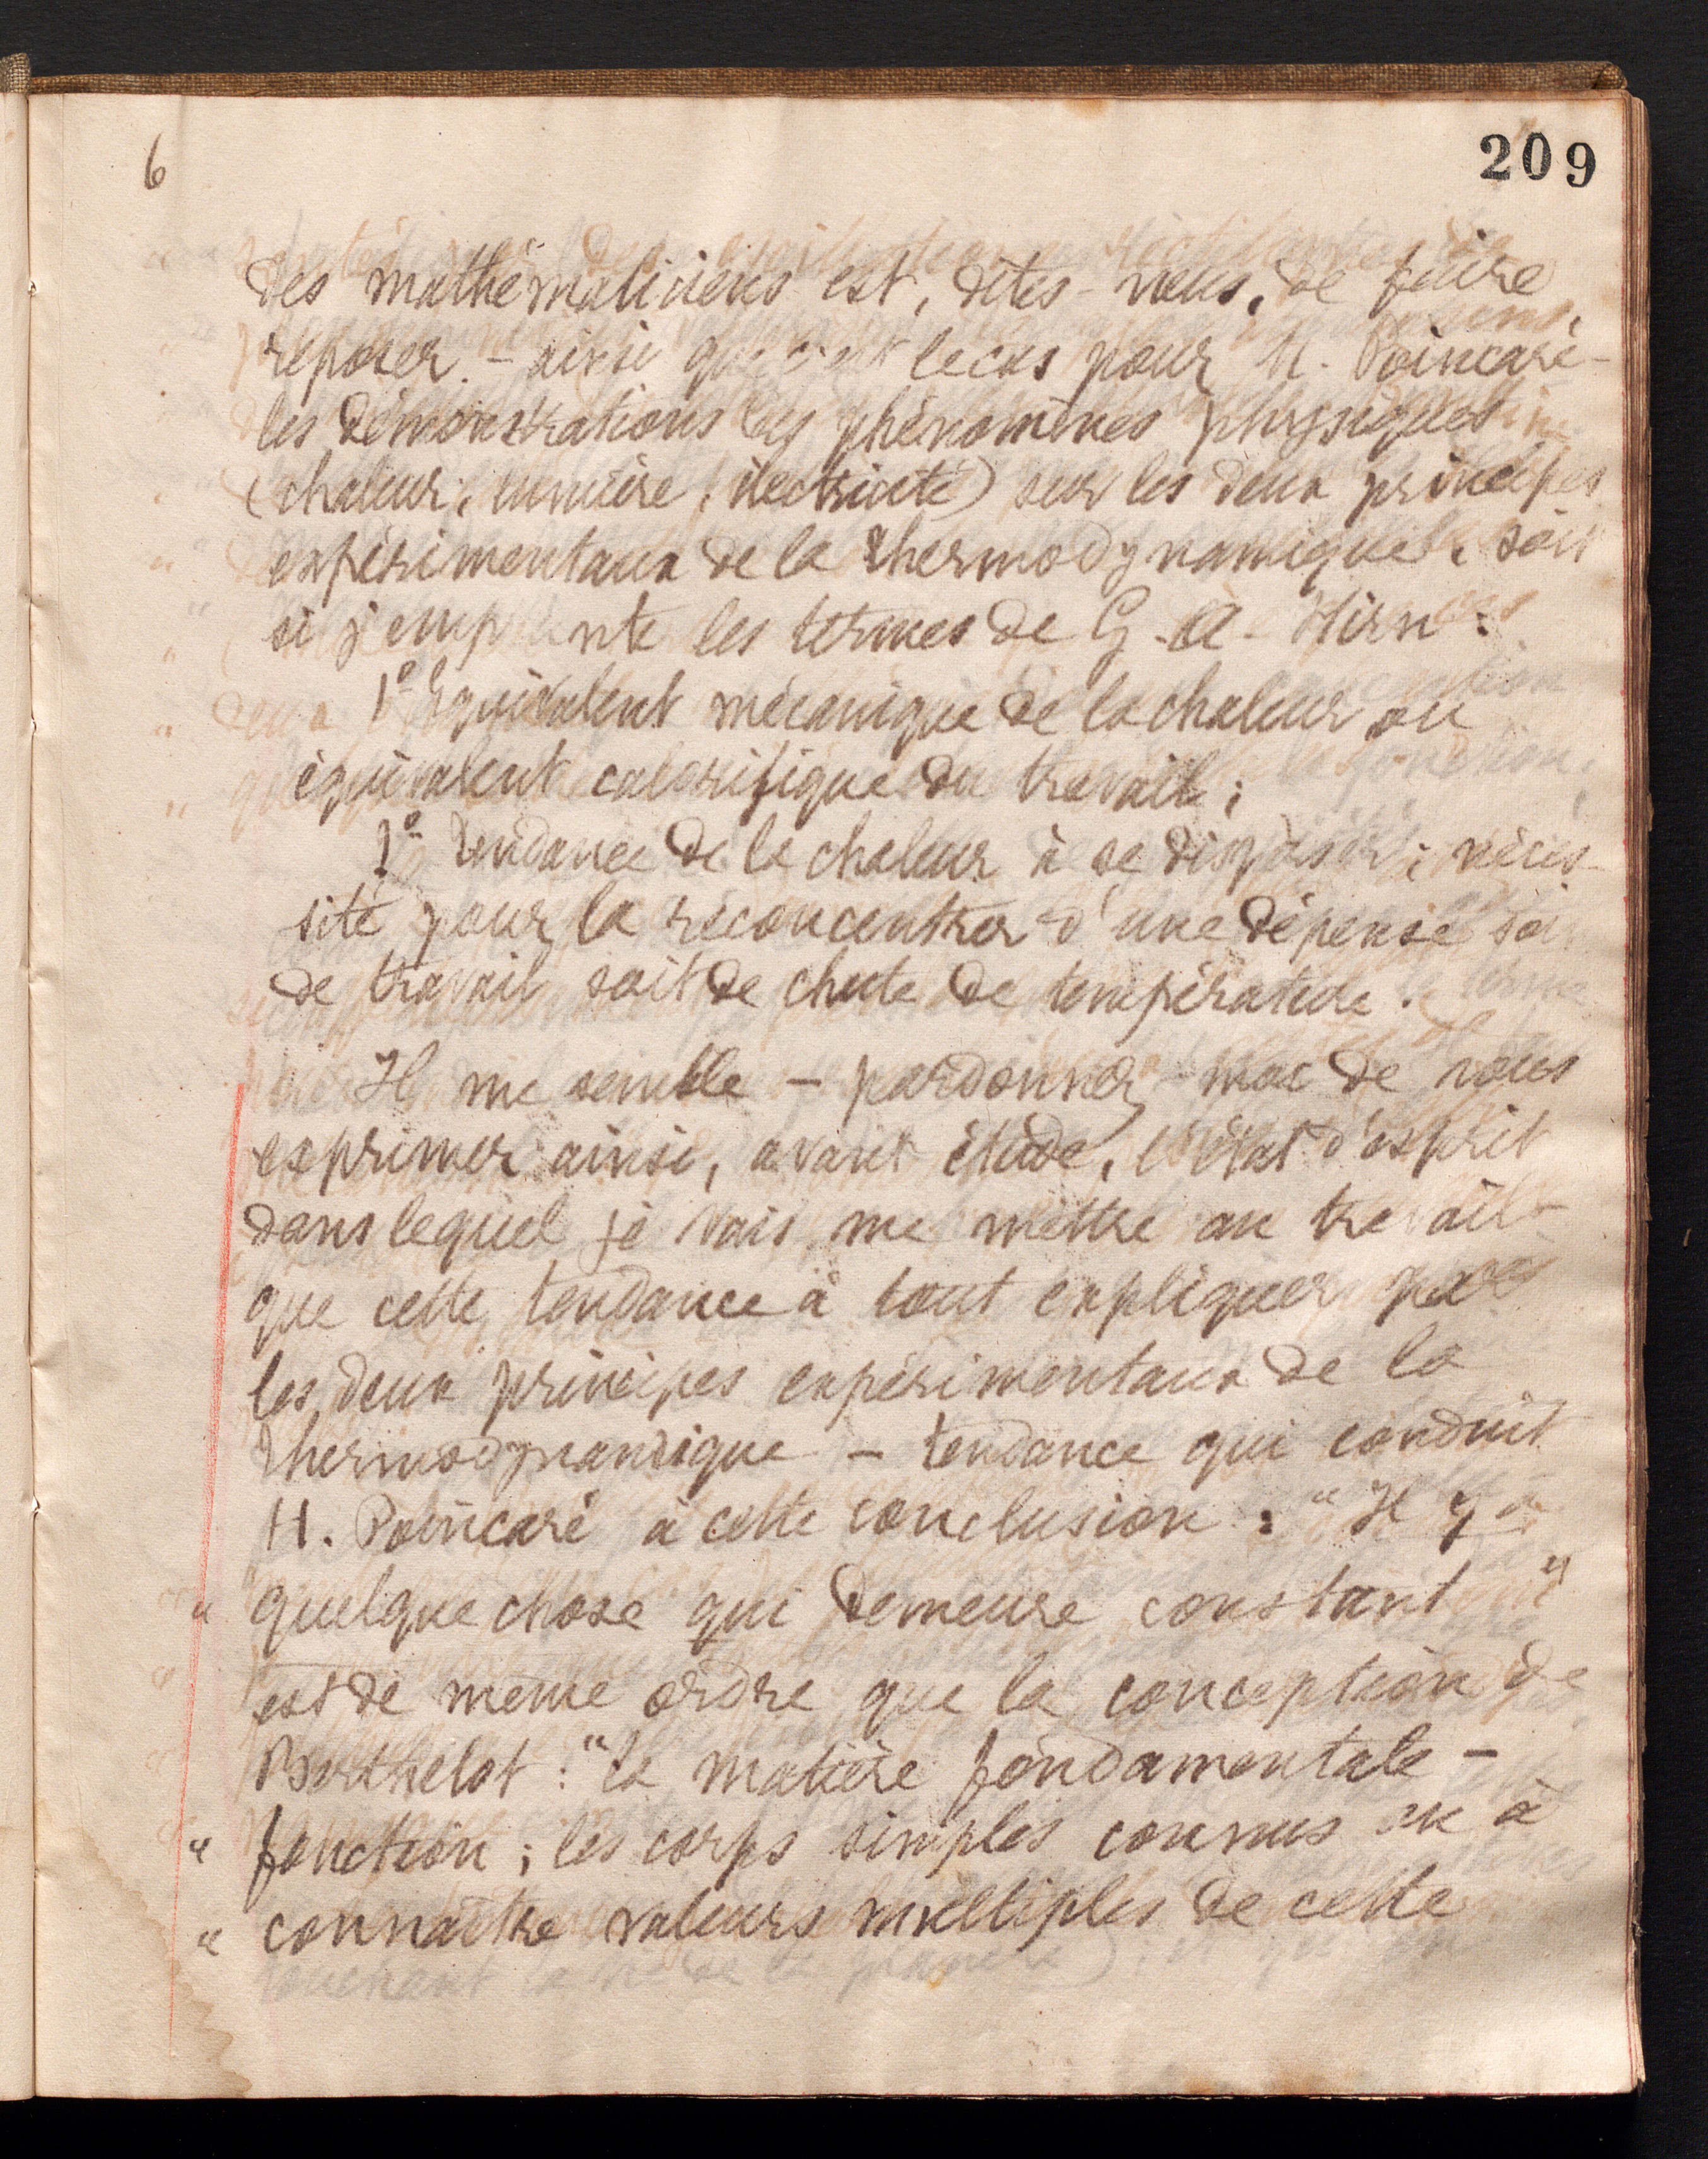 6
209
des mathématiciens est, dites-vous, de faire
reposer - ainsi que c'est le cas pour H. Poincaré -
les démonstrations des phénomènes physiques
(chaleur, lumière, électricité) sur les deux principes
expérimentaux de la thermodynamique, soit
si j'emprunte les termes de G-A-Hirn :
1° Equivalent mécanique de la chaleur ou
équivalent calorifique du travail ;
2° tendance de la chaleur à se disperser ; néces-
sité pour la reconcentrer d'une dépense soit
de travail soit de chute de température.
Il me semble - pardonnez-moi de vous
exprimer ainsi, avant étude, l'état d'esprit
dans lequel je vais me mettre au travail -
que cette tendance à tout expliquer par
les deux principes expérimentaux de la
thermodynamique - tendance qui conduit
H. Poincaré à cette conclusion : " Il y a
" quelque chose qui demeure constant "
est de même ordre que la conception de
Berthelot : " La matière fondamentale -
" fonction ; les corps simples connus ou à
" connaître valeurs multiples de cette